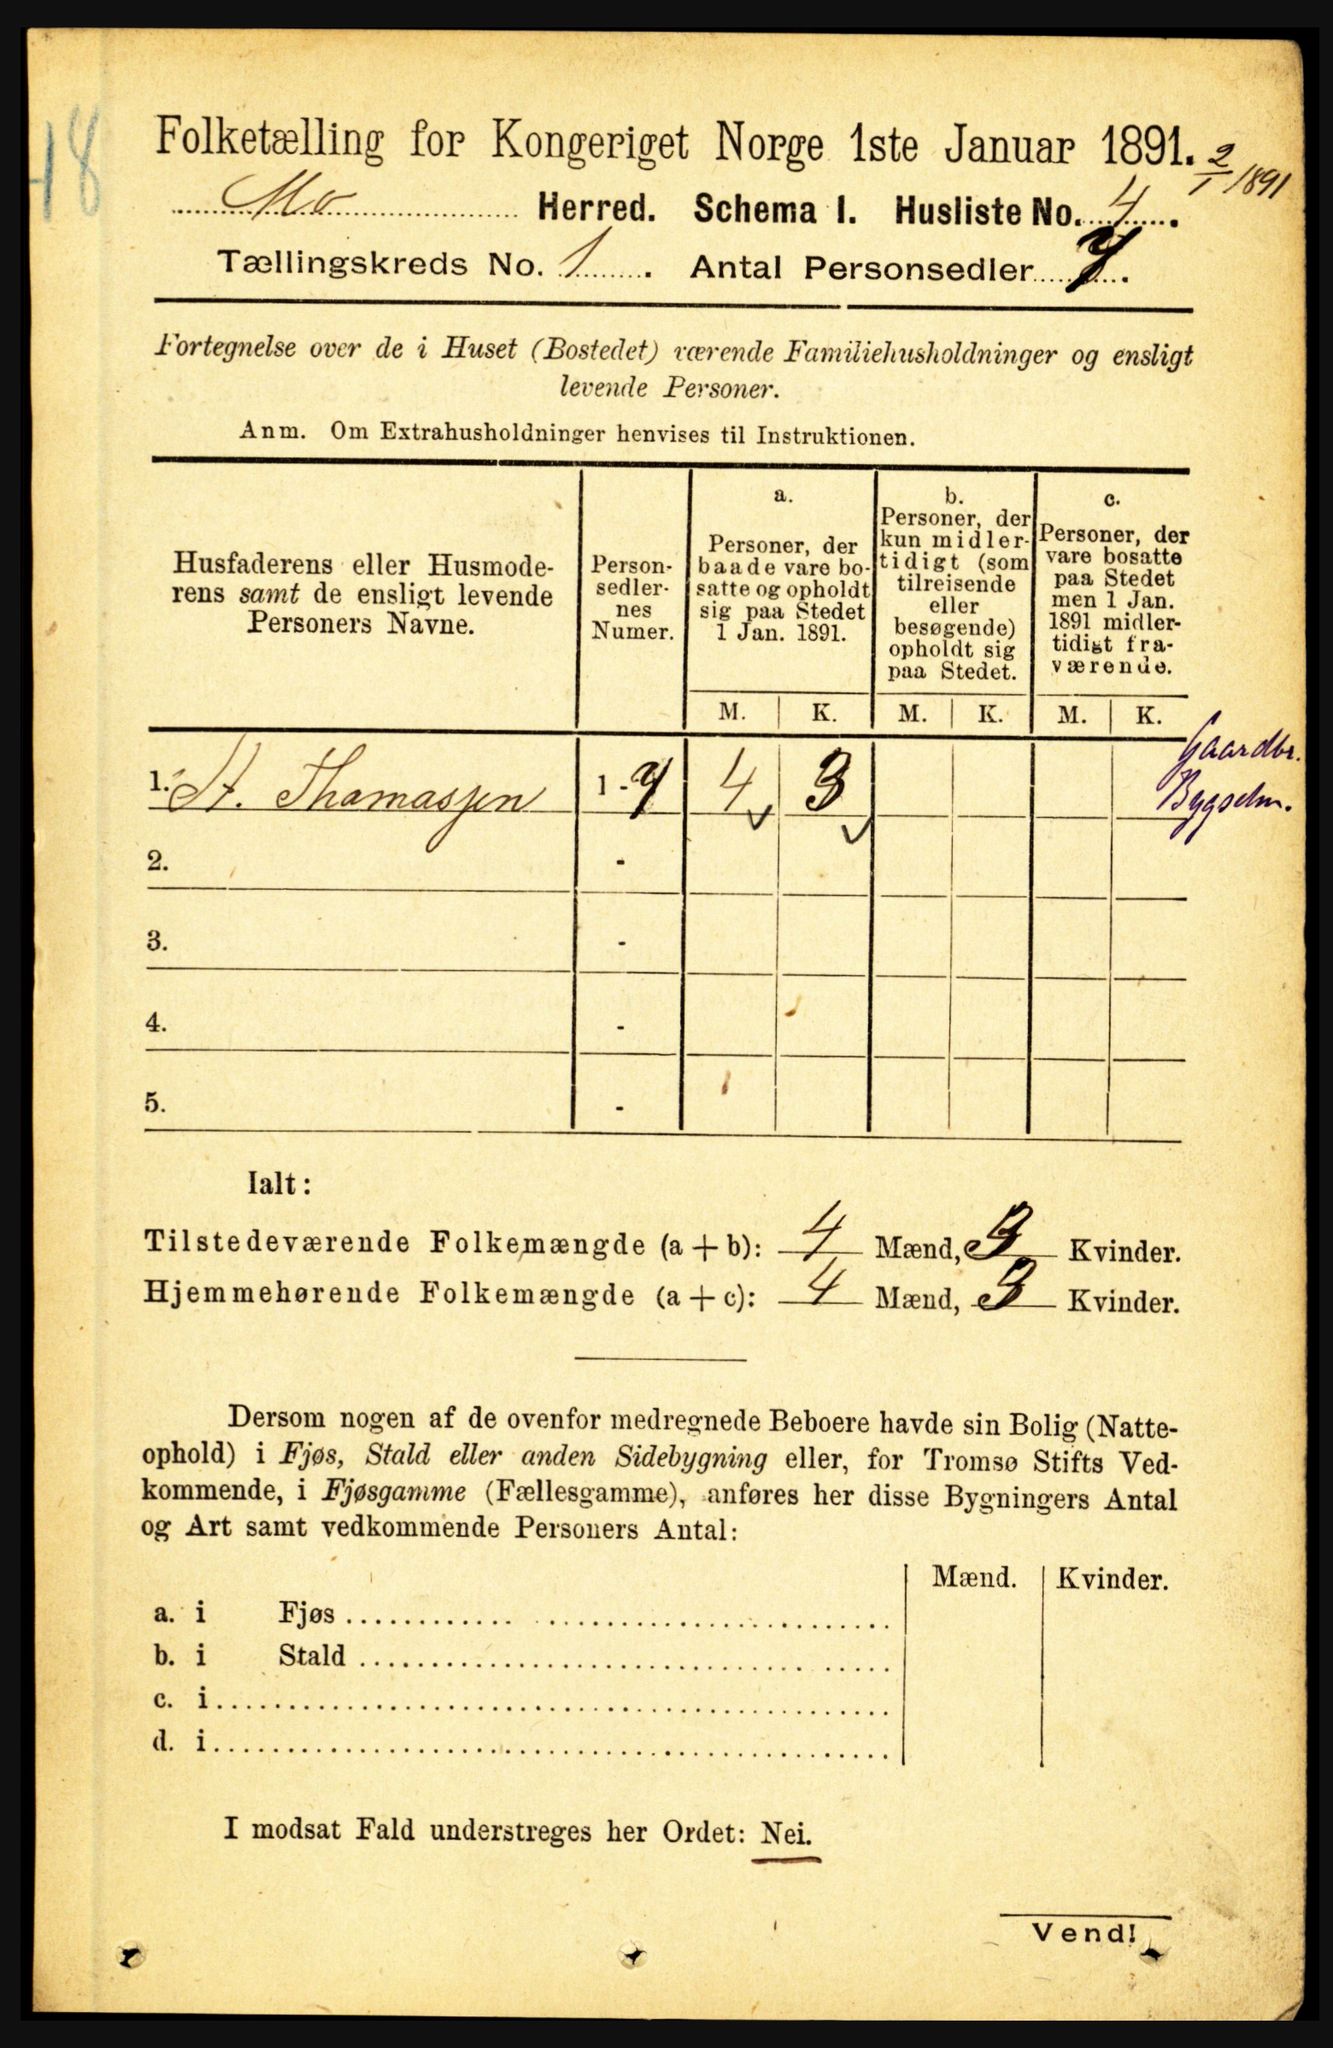 18
Folketælling for Kongeriget Norge 1ste Januar 1891.
2/1 1891
Mo Herred. Schema I. Husliste No. 4.
Tællingskreds No. 1. Antal Personsedler 7.
Fortegnelse over de i Huset (Bostedet) værende Familiehusholdninger og ensligt
levende Personer.
Anm. Om Extrahusholdninger henvises til Instruktionen.
Husfaderens eller Husmode-
rens samt de ensligt levende
Personers Navne.
Person-
sedler-
nes
Numer.
a.
Personer, der
baade vare bo-
satte og opholdt
sig paa Stedet
1 Jan. 1891.
b.
Personer, der
kun midler-
tidigt (som
tilreisende
eller
besøgende)
opholdt sig
paa Stedet.
c.
Personer, der
vare bosatte
paa Stedet
men 1 Jan.
1891 midler-
tidigt fra-
værende.
M. K. M. K. M. K.
1. A. Thomassen 1 - 7 4 3
Gaardbr.
Bygselm.
2. -
3. -
4. -
5. -
Ialt:
Tilstedeværende Folkemængde (a + b): 4 Mænd, 3 Kvinder.
Hjemmehørende Folkemængde (a + c): 4 Mænd, 3 Kvinder.
Dersom nogen af de ovenfor medregnede Beboere havde sin Bolig (Natte-
ophold) i Fjøs, Stald eller anden Sidebygning eller, for Tromsø Stifts Ved-
kommende, i Fjøsgamme (Fællesgamme), anføres her disse Bygningers Antal
og Art samt vedkommende Personers Antal:
Mænd. Kvinder.
a. i Fjøs
b. i Stald
c. i
d. i
I modsat Fald understreges her Ordet: Nei.
Vend!